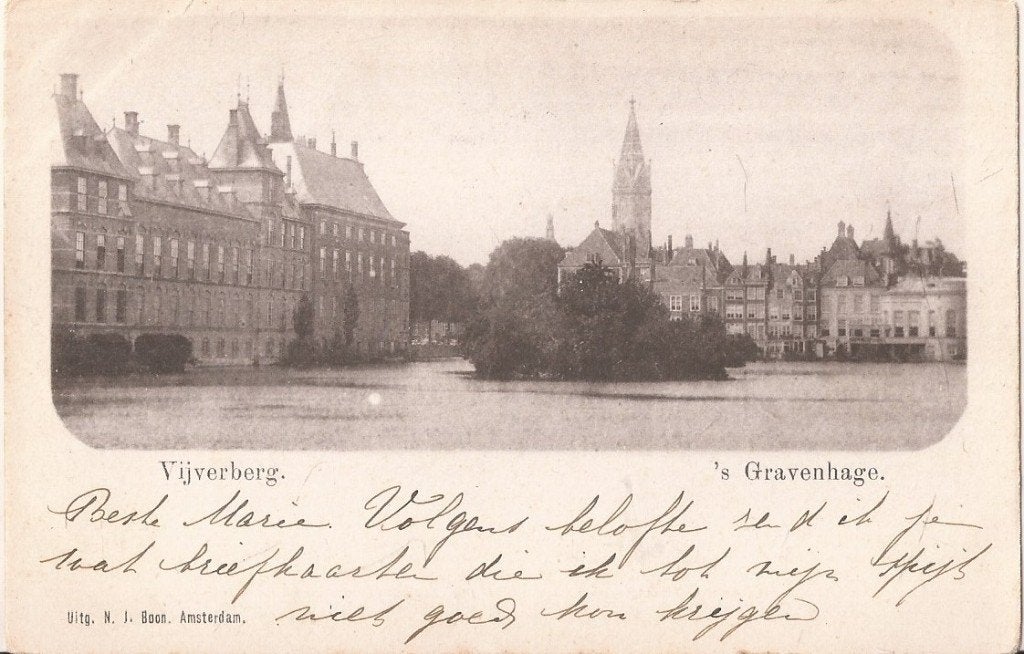 Vijverberg. 's Gravenhage.
Beste Marie. Volgens belofte zend ik je
wat briefkaarten die ik tot mijn spijt
niet goed kon krijgen
Uitg. N. J. Boon. Amsterdam.